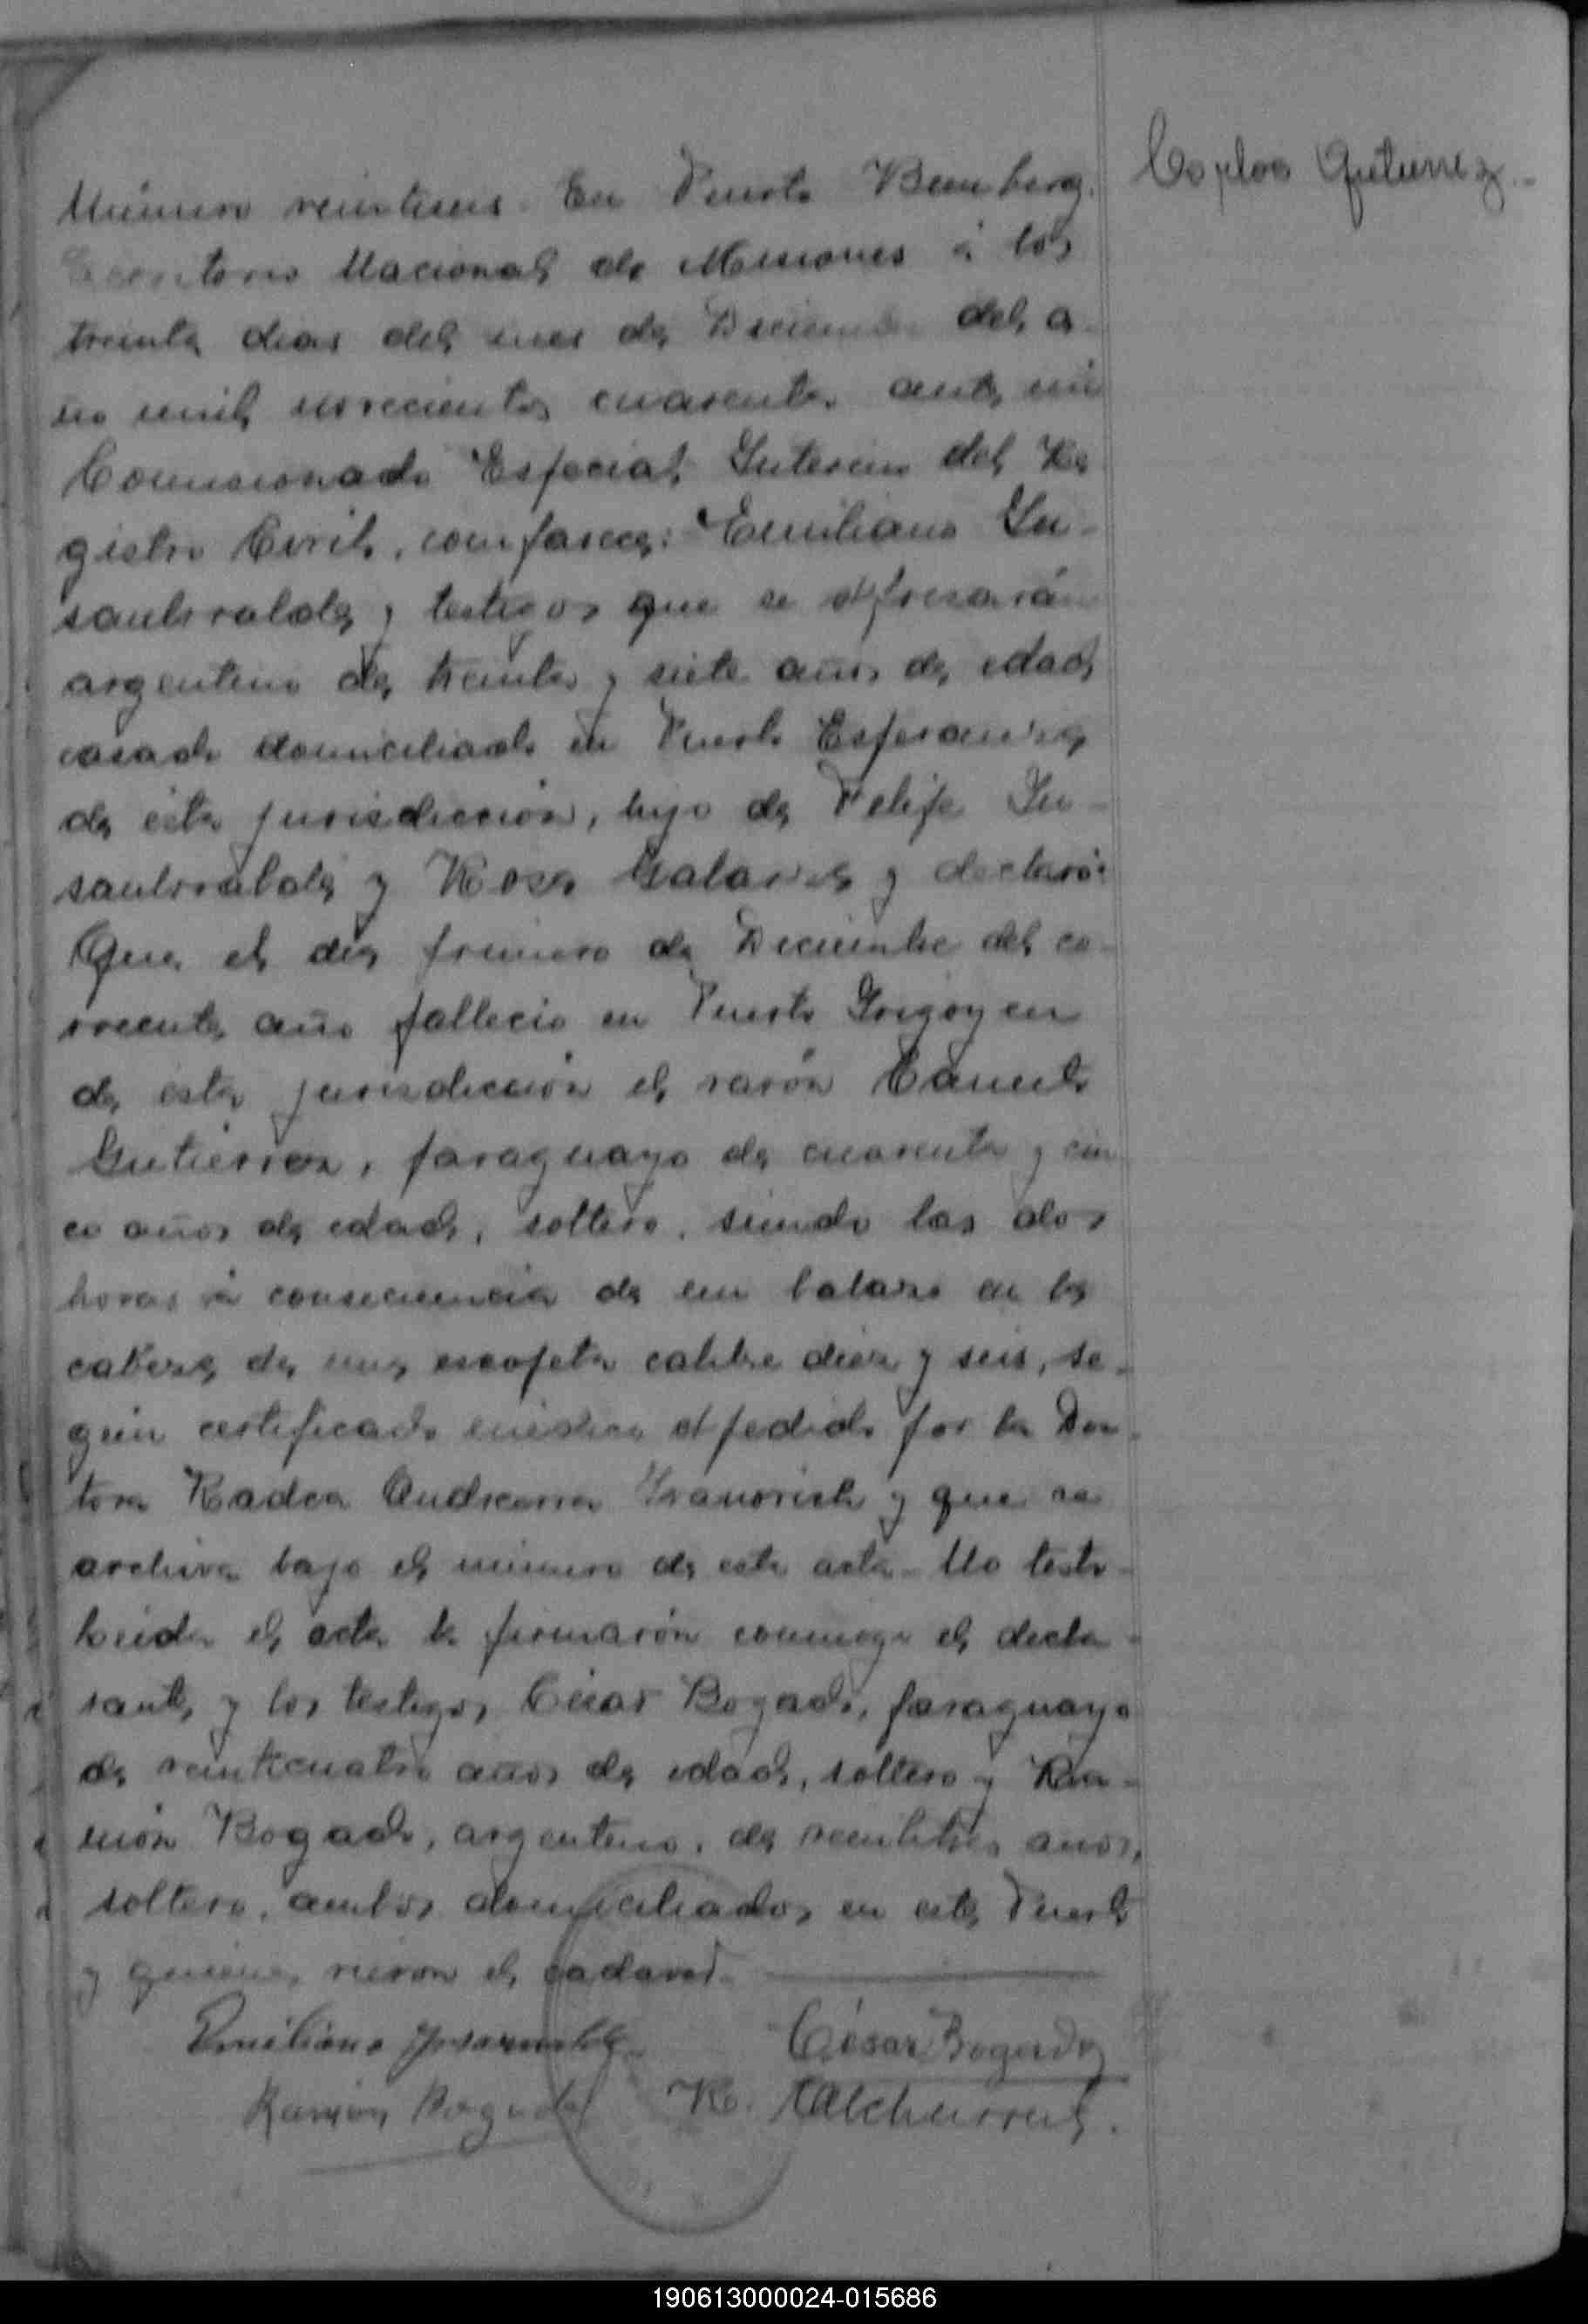 Carlos Gutierrez.-
Número veintiseis En Puerto Bemberg.
Territorio Nacional de Misiones á los
treinta dias del mes de Diciembre del a-
ño mil novecientos cuarenta ante mi
Comisionado Especial Interino del Re
gistro Civil, comparece: Emiliano In-
saubralde y testigos que se expresarán
argentino de treinta y siete años de edad
casado domiciliado en Puerto Esperanza
de esta jurisdiccion, hijo de Felipe In-
saubralde y Rosa y declaró:
Que el dia primero de Diciembre del co-
rriente año fallecio en Puerto Irigoyen
de esta jurisdiccion el varón
Gutierrez, paraguayo de cuarenta y cin
co años de edad, soltero, siendo las dos
horas á consecuencia de un balazo en la
cabeza de una escopeta calibre diez y seis, se-
gún certificado médico expedido por la Doc-
tora Radca y que se
archiva bajo el número de esta acta. No testo
leida el acta la firmarón conmigo el decla-
rante y los testigos César Bogado, paraguayo
de veinticuatro años de edad, soltero y Ra-
món Bogado, argentino, de veintitres años,
soltero, ambos domiciliados en este Puerto
y quienes vieron el cadaver.
Emiliano César Bogado
Ramón Bogado R.
190613000024-015686